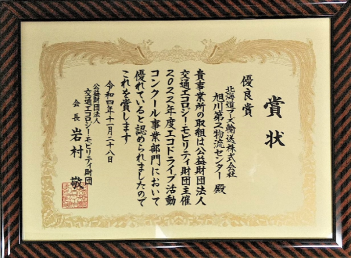 賞状
優良賞
北海道フーズ輸送株式会社
旭川第2物流センター 殿
貴事業所の取組は公益財団法人
交通エコロジーモビリティ財団主催
2022年度エコドライブ活動
コンクール事業部門において
優れていると認められましたので
これを賞します
令和四年十一月二十八日
公益財団法人
交通エコロジー・モビリティ財団
会長 岩村 敬